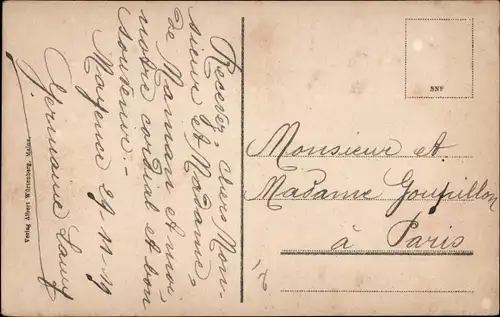 Recevez, chers Mon-
sieur et Madame,
de Maman et moi
notre cordial et bon
souvenir.-
Mayence 29.11.19
Germaine
Verlag Albert Württemberg, Mainz.
SNF
Monsieur et
Madame Goupillon
à Paris